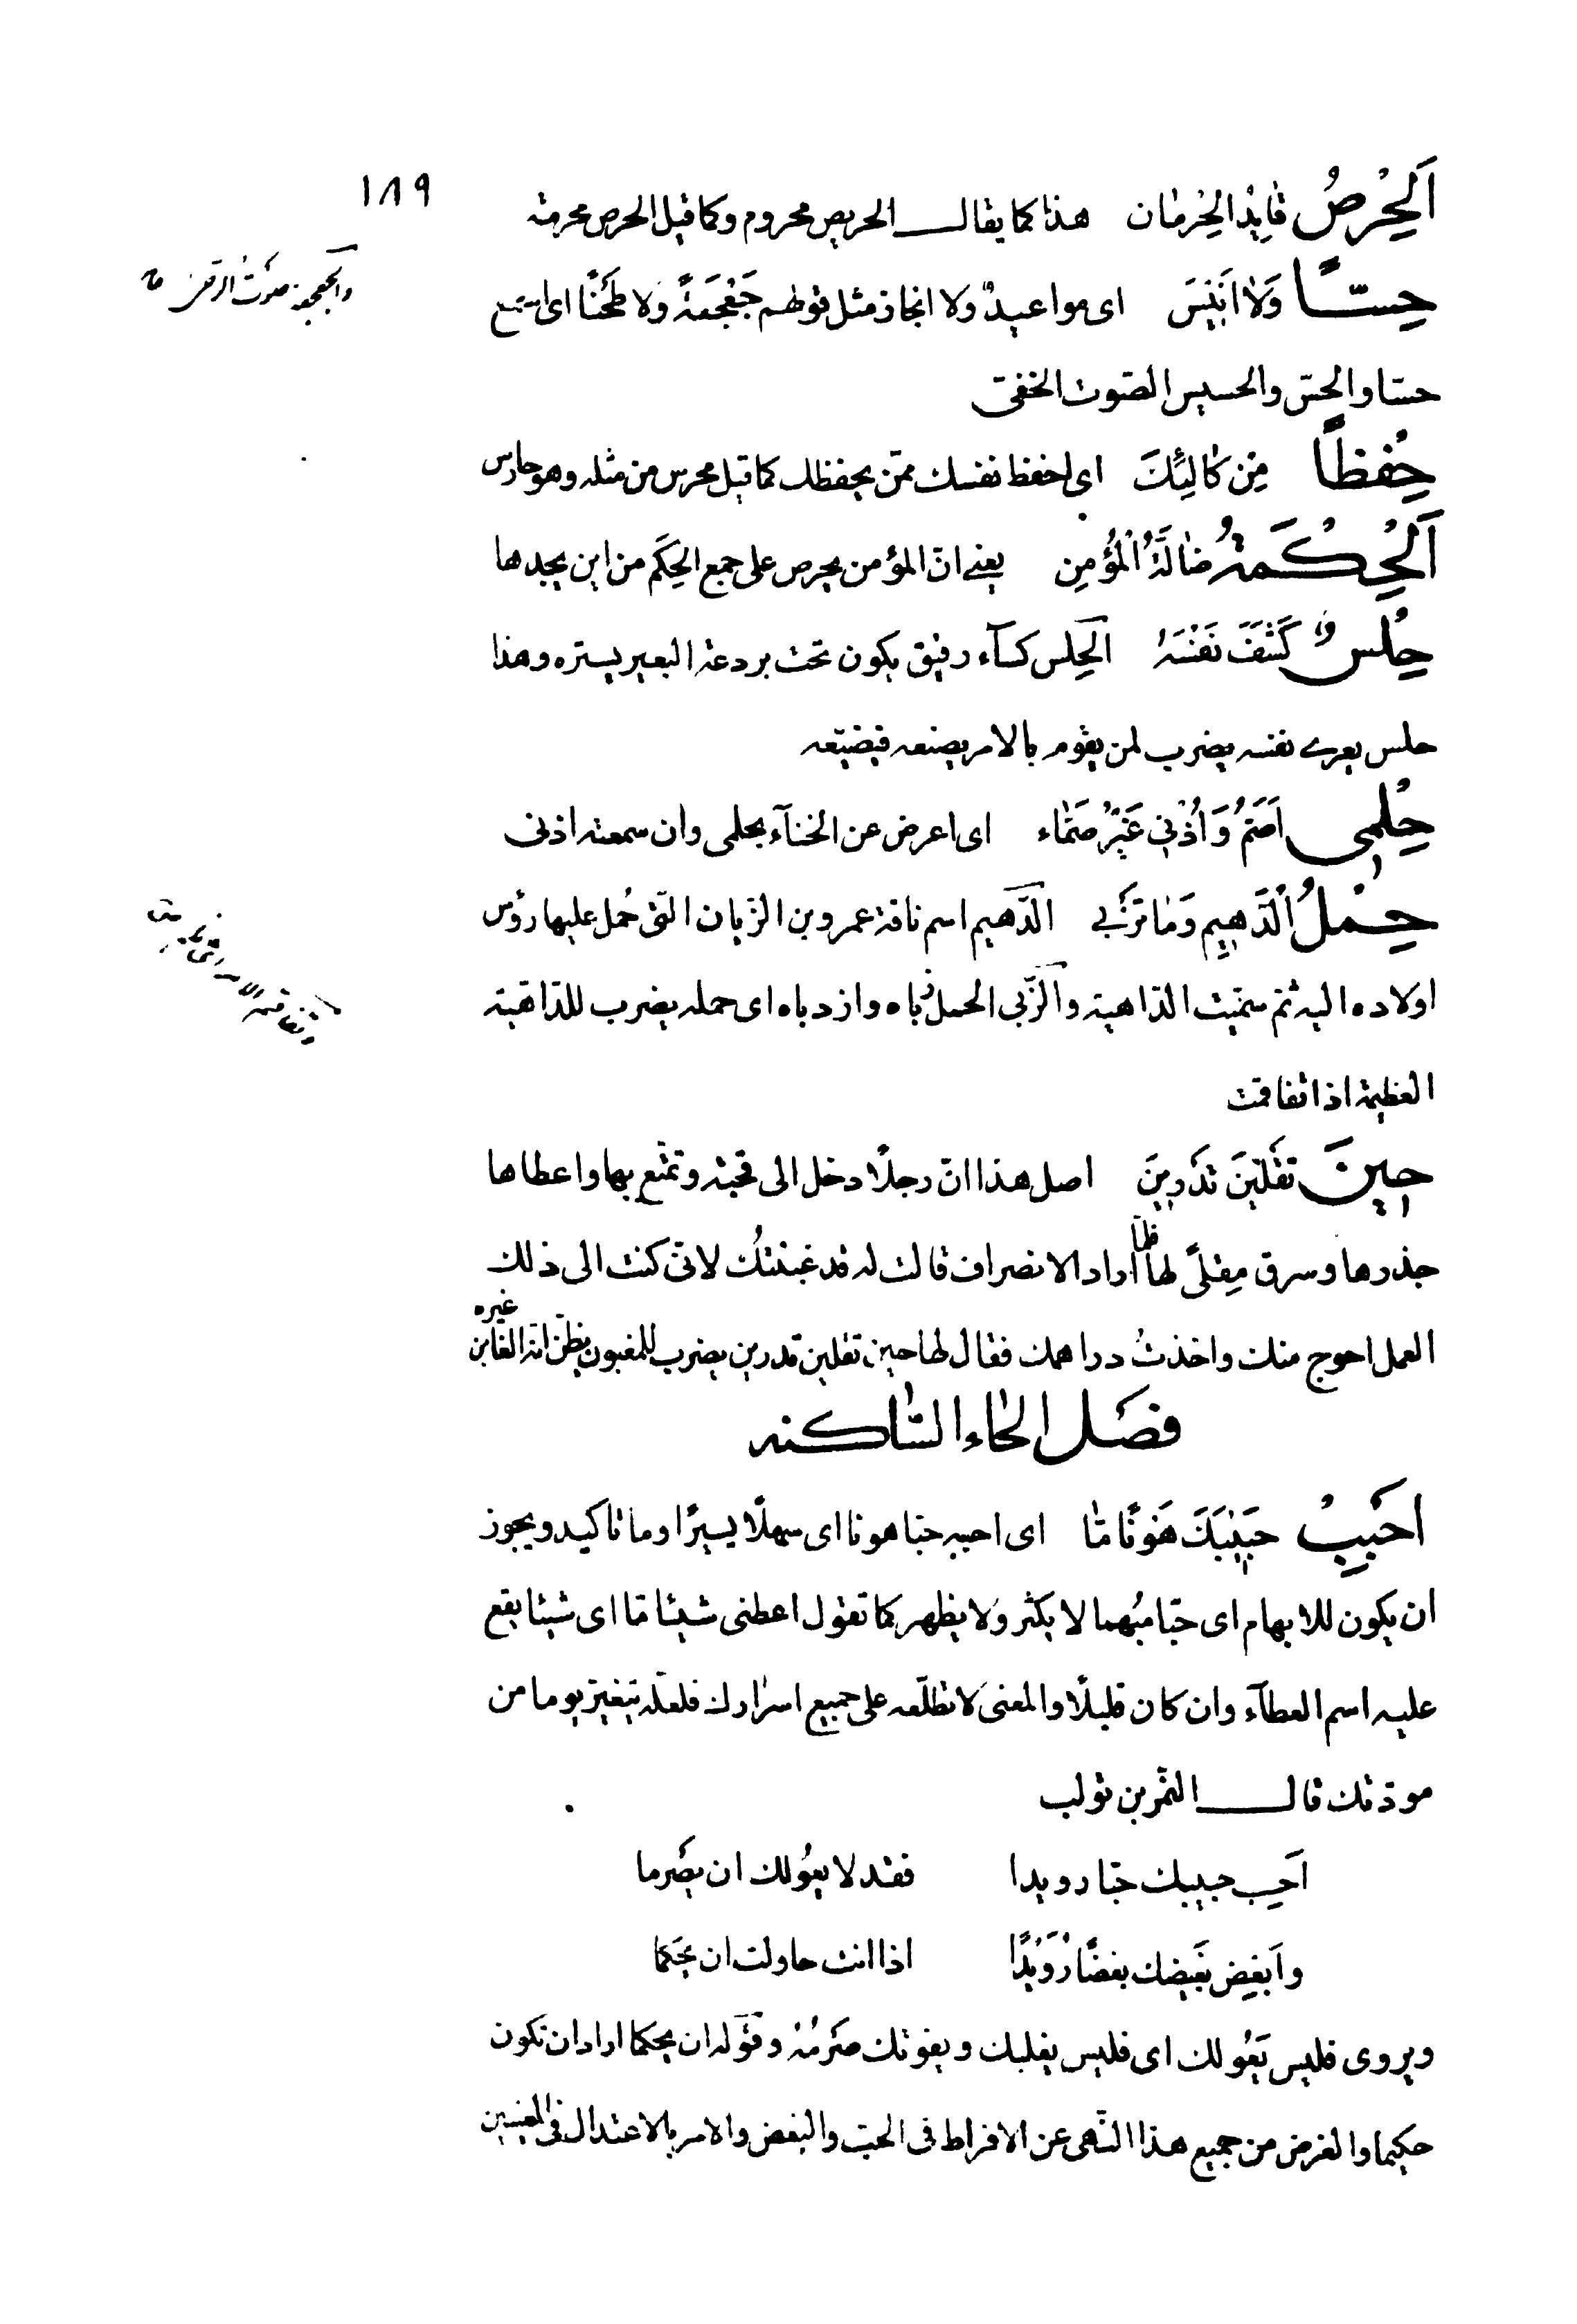 ١٨٩
اَلْحِرْصُ قَايِدُ الْحِرْمَان هذا كما يقال الحريص محروم وكما قيل الحرص محرمة
حِسًّا وَلَا اَنِيسَ اى مواعيدٌ ولا انجاز مثل قولهم جَعْجَعَةً وَلا طَحْنًا اى اسمع
والجعجعة صوت الرحى
حسّا والحسّ والحسيس الصّوت الخفىّ
حِفظًا مِنْ كَالِئِكَ اى احفظ نفسك ممّن يحفظك كما قيل محرس من مثله وهو حارس
اَلْحِكْمَةُ ضَالَّةُ الْمُؤْمِنِ يعنے انّ المؤمن يحرص على جمع الحِكَم من اين يجدها
حِلْسٌ كَشَفَ نَفْسَهُ الْحِلس كسآء رقيق يكون تحت بردعة البعير يستره وهذا
حلس يعرے نفسه يضرب لمن يقوم بالامر يصنعه فيضيّعه
حِلْمِى اَصَمُّ وَاُذُنِى غَيْرُ صَمَّاء اى اعرض عن الخنآء بحلمى وان سمعته اذنى
حِمْلُ الدَّهِيمِ وَمَا تَزْبِى الدَّهيم اسم ناقة عمرو بن الزبان التى حُمل عليها رؤس
اولاده اليه ثمّ سمّيت الدّاهية والزَّبى الحمل زباه وازدباه اى حمله يضرب للدّاهية
العظيمة اذا تفاقمت
حِينَ تَقْلِينَ تَدْرِينَ اصل هذا انّ رجلًا دخل الى قحبة وتمتّع بها واعطاها
جذرها وسرق مِقلىً لها فلمّا اراد الانصراف قالت له قد غبنتُك لانّى كنت الى ذلك
العمل احوج منك واخذتُ دراهمك فقال لها حين تقلين تدرين يضرب للمغبون يظنّ انّه الغابن غيره
فصل الحاء السّاكنه
اَحْبِبْ حَبِيبَكَ هَوْنًا مَّا اى احببه حبّا هونا اى سهلًا يسيرًا وما تاكيد ويجوز
ان يكون للابهام اى حبّا مبُهما لا يكثر وَلا يظهر كما تقول اعطنى شيئا مّا اى شيئا يقع
عليه اسم العطآء وان كان قليلًا والمعنى لا تطلّعه على جميع اسرارك فلعلّه يتغيّر يوما من
مودّتك قال النّمر بن تولب
اَحبِب حبيبك حبّا رويدا فقد لا يعُولك ان يصرما
واَبغِض بَغيضك بغضًا رُوَيْدًا اذا انت حاولت ان تَحكما
ويروى فليس يَعُولك اى فليس يغلبك ويفوتك صَرمُهُ وقَوله ان تحكما اراد ان تكون
حكيما والغرض من جميع هذا النّهى عن الافراط فى الحبّ والبغض والامر بالاعتدال فى المعنيين